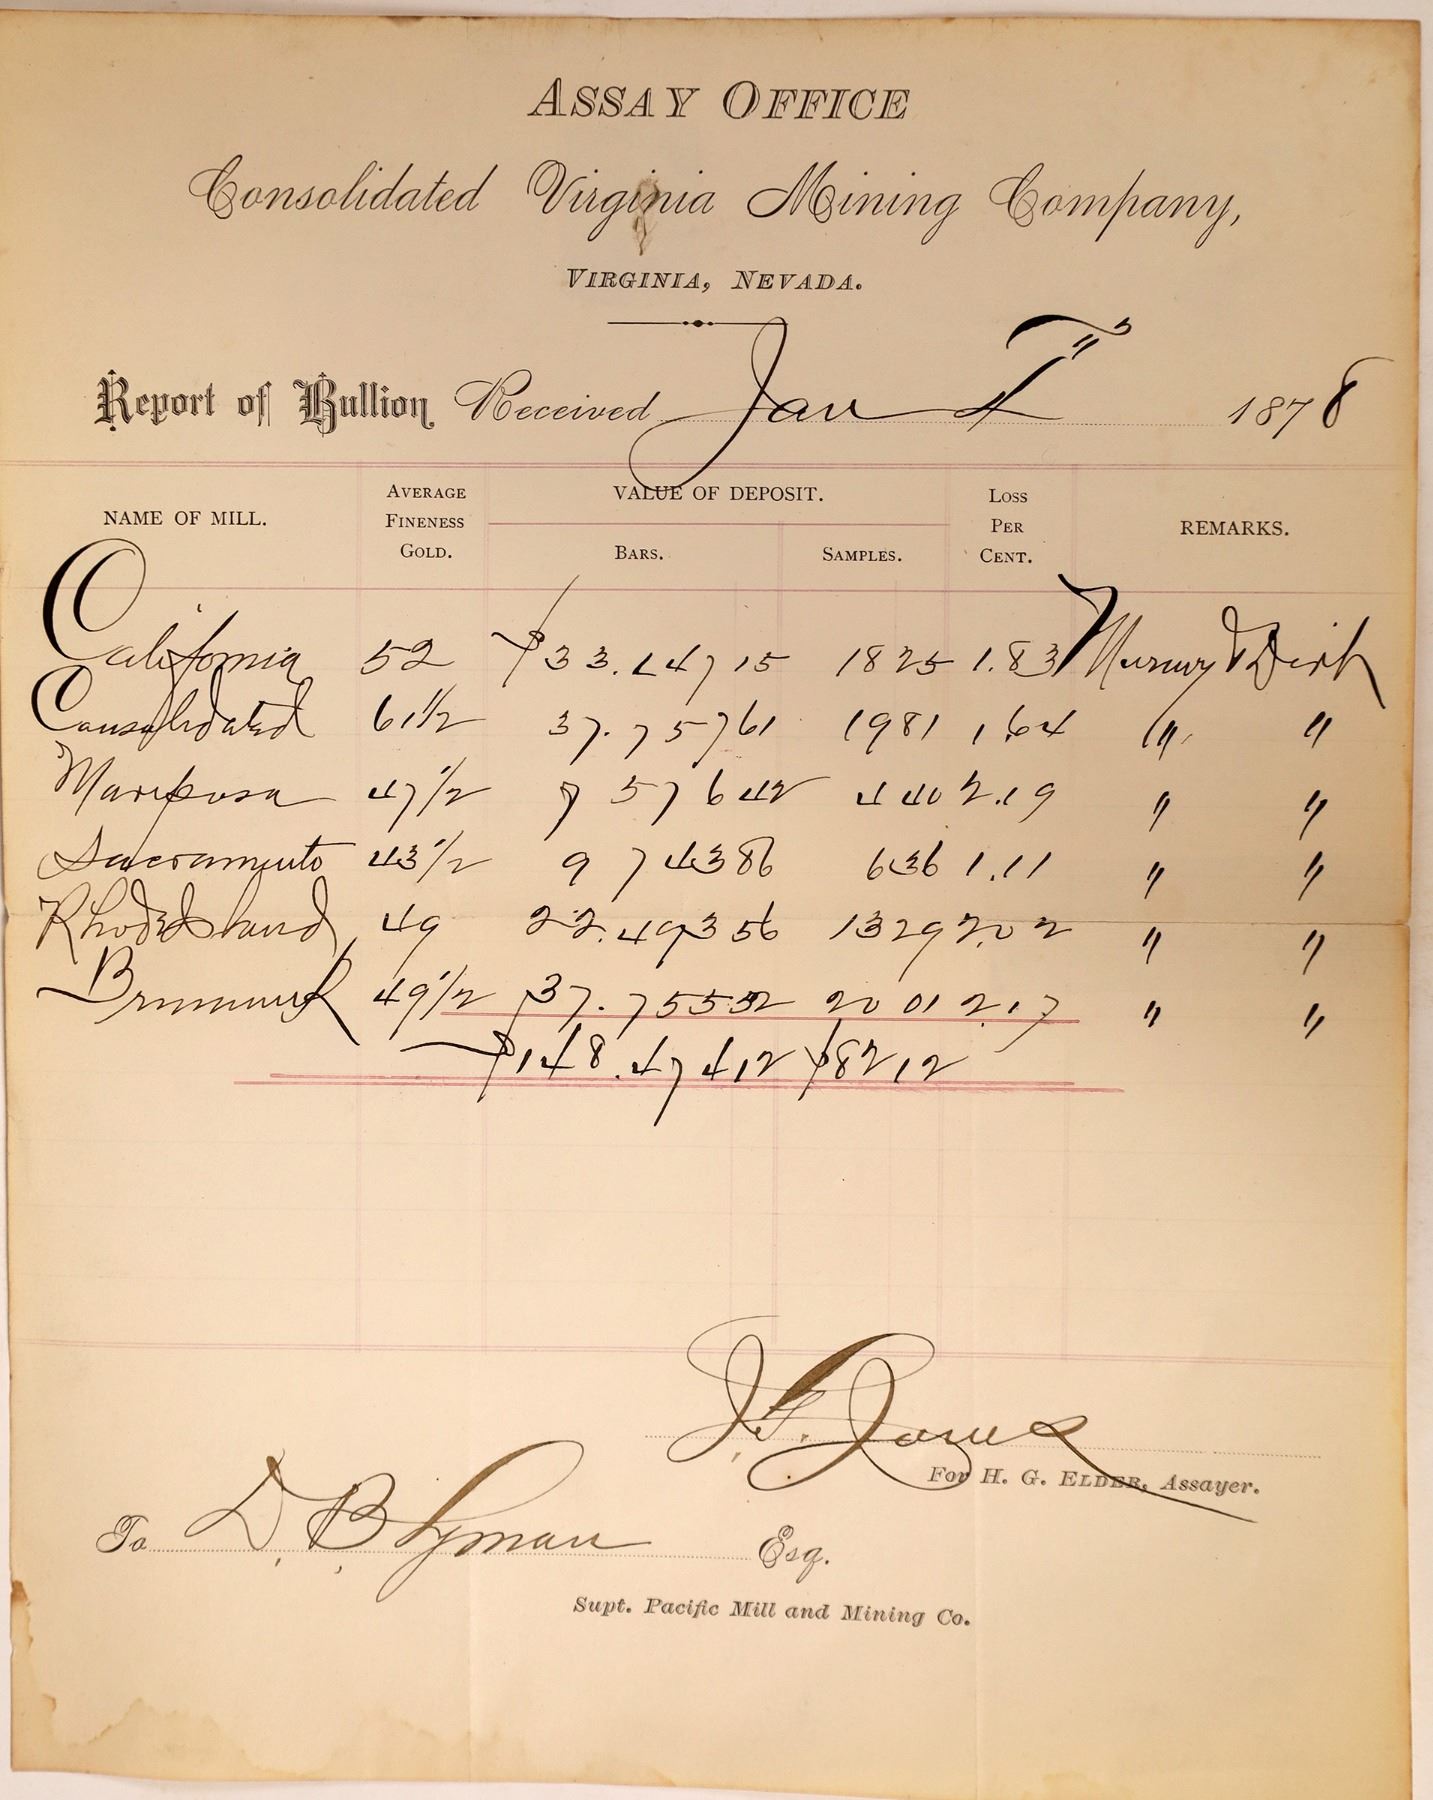 ASSAY OFFICE
Consolidated Virginia Mining Company,
VIRGINIA, NEVADA.
Report of Bullion Received Jan 4" 1878
NAME OF MILL. AVERAGE FINENESS GOLD. VALUE OF DEPOSIT. BARS. SAMPLES. LOSS PER CENT. REMARKS.
California 52 $33.147 15 18 25 1.83 Mercury & Dirt
Consolidated 61 1/2 37.757 61 19 81 1.64 " "
Mariposa 47 1/2 7 576 42 4 40 2.19 " "
Sacramento 43 1/2 9 743 86 6 36 1.11 " "
Rhode Island 49 22.493 56 13 29 2.02 " "
Brunswick 49 1/2 37.755 52 20 01 2.17 " "
$148.474 12 $82 12
J. F. Jones
For H. G. ELDER, Assayer.
To D. B. Lyman Esq.
Supt. Pacific Mill and Mining Co.